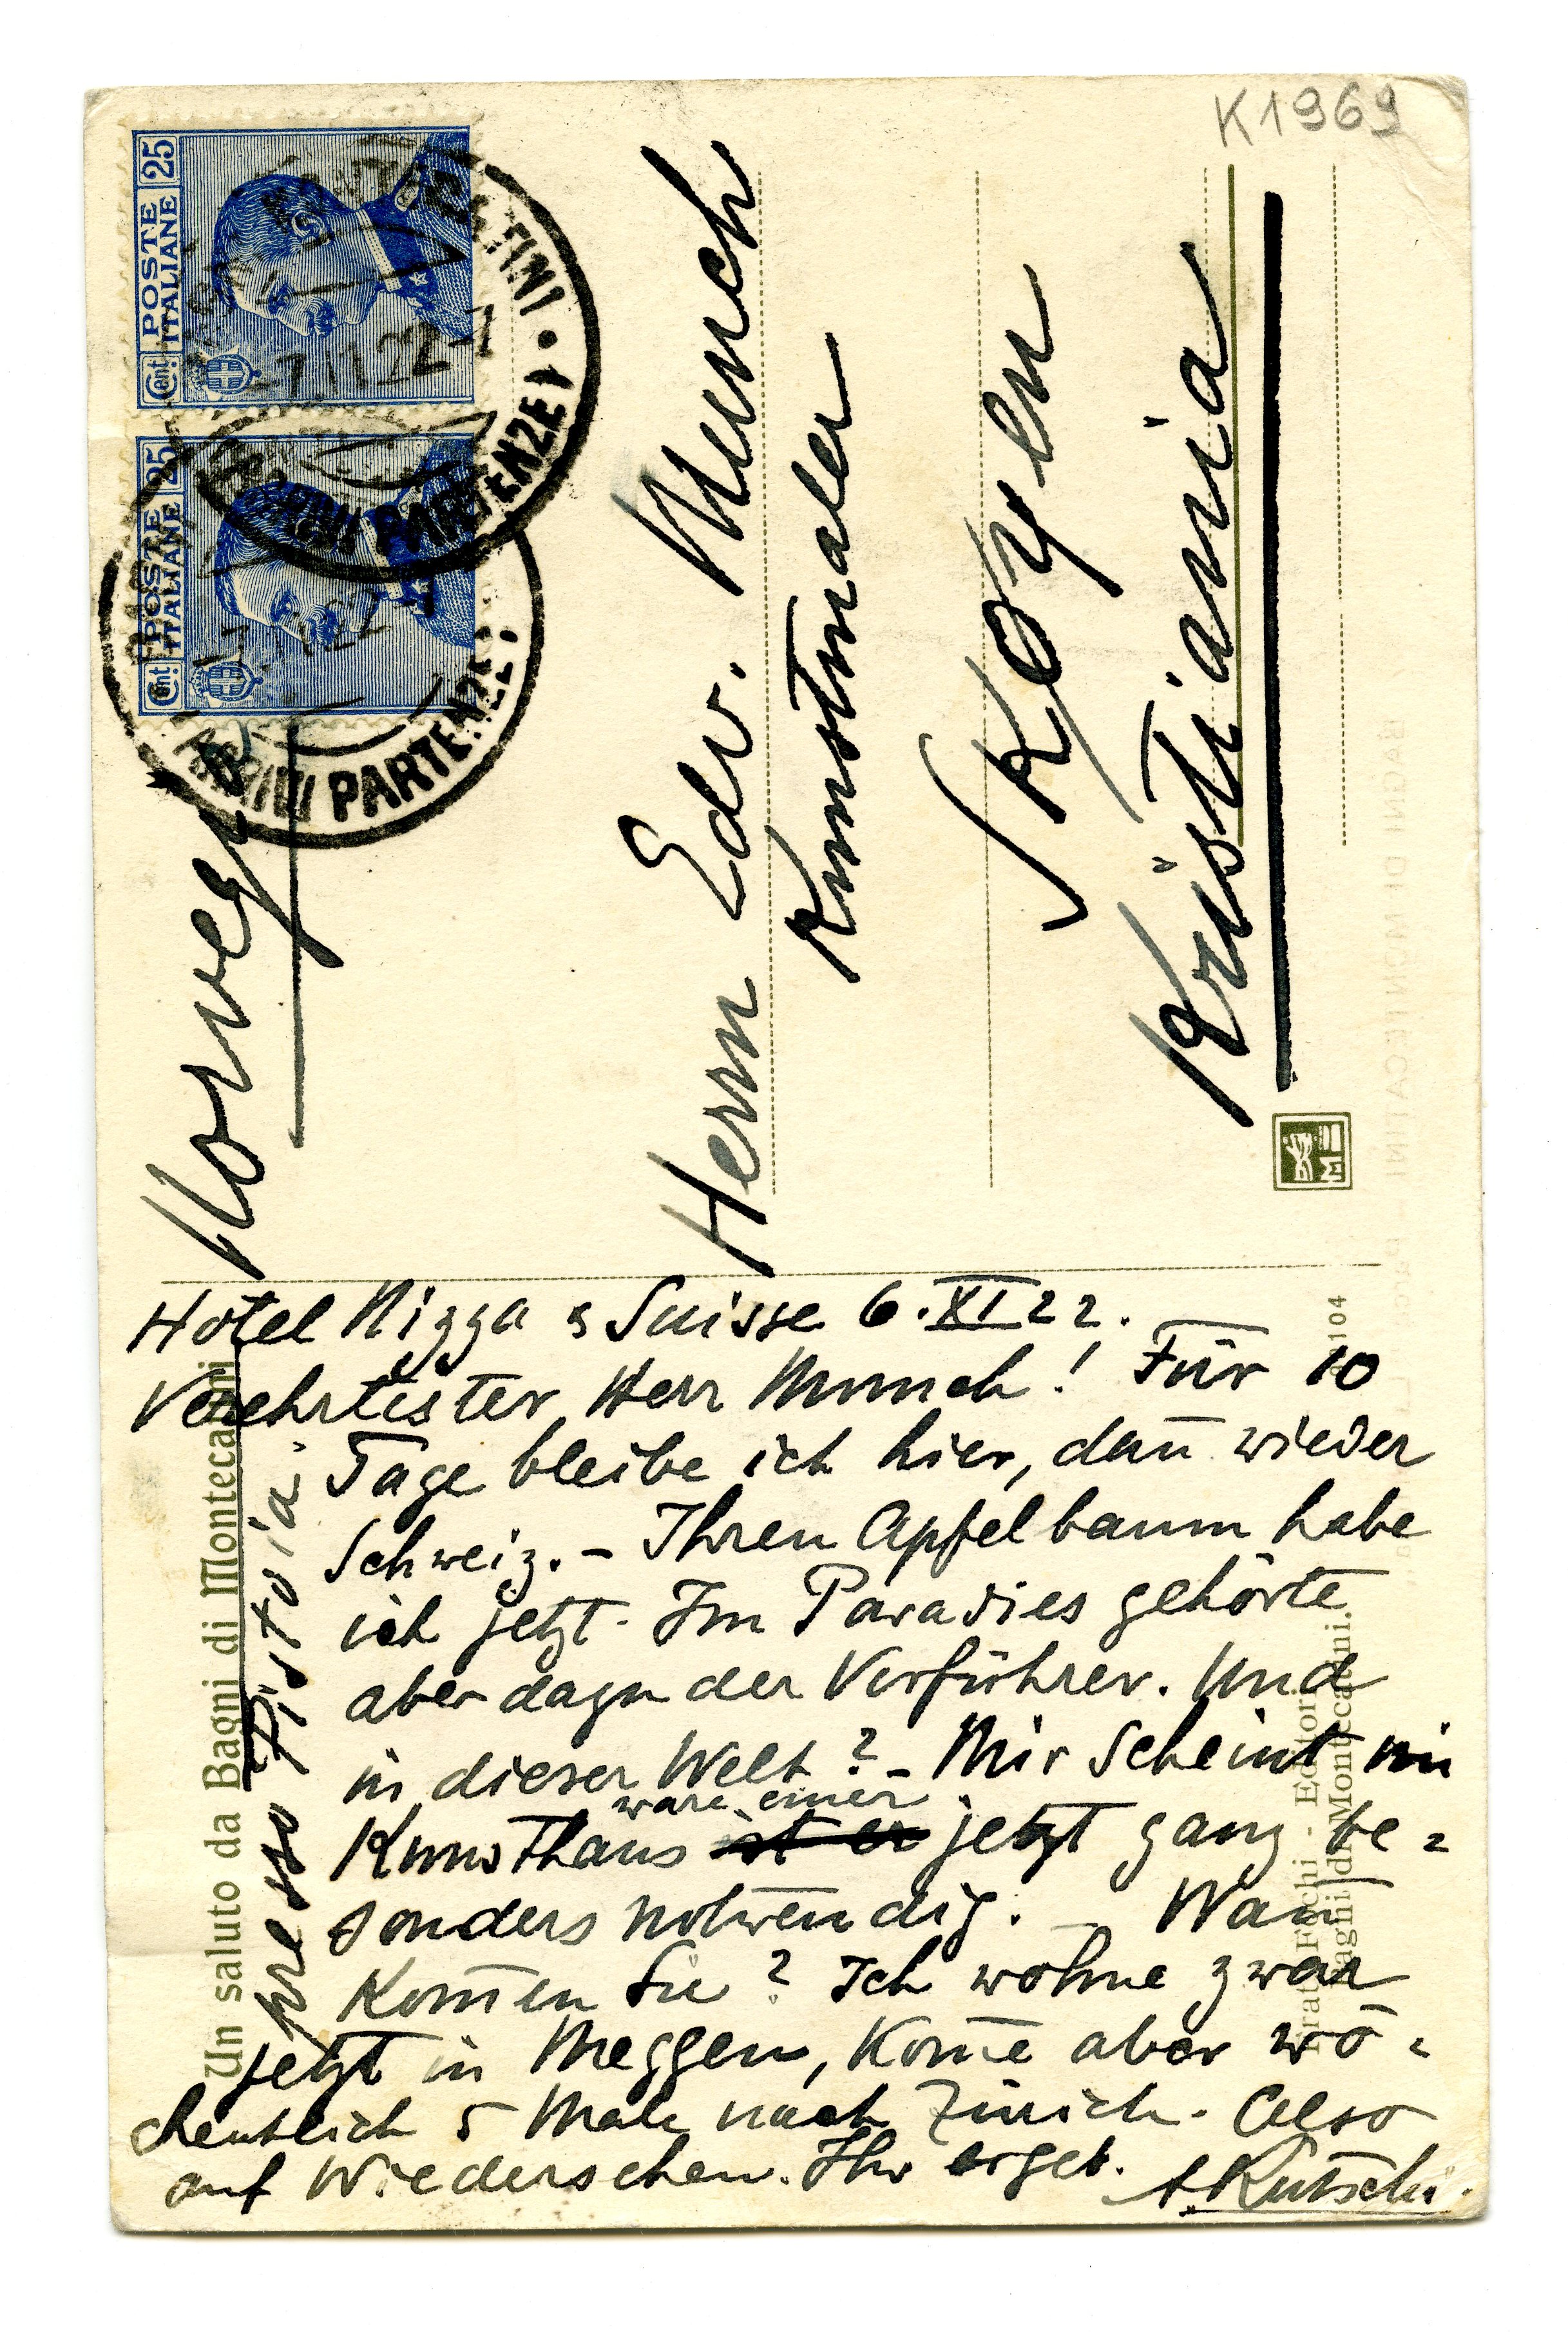 K1969
Cent. 25
POSTE
ITALIANE
Cent. 25
POSTE
ITALIANE
-7.11.22
ARRIVI PARTENZE
ARRIVI PARTENZE
Norvegia
Herrn Edv. Munch
Kunstmaler
Skøyen
Kristiania
Un saluto da Bagni di Montecatini
presso Pistoia.
Hotel Nizza & Suisse 6.XI 22.
Verehrtester Herr Munch! Für 10
Tage bleibe ich hier, dan̄ wieder
Schweiz. – Ihren Apfelbaum habe
ich jetzt. Im Paradies gehörte
aber dazu der Verführer. Und
in dieser Welt? – Mir scheint im
wäre einer
Kunsthaus ist er jetzt ganz be=
sonders notwendig. – Wan̄
kom̄en Sie? Ich wohne zwar
jetzt in Meggen, kom̄e aber wö=
chentlich 5 Male nach Zürich. Also
auf Wiedersehen. Ihr ergeb. A. Rütschi.
104
Fratt. Fochi - Editori
Bagni di Montecatini.